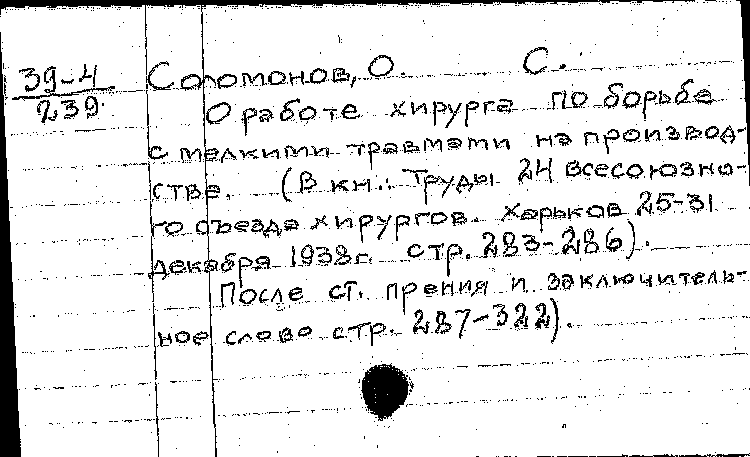 39-4
239.
Соломонов, О. С.
О работе хирурга по борьбе
с мелкими травмами на производ-
стве. (В кн.: Труды 24 всесоюзно-
го съезда хирургов. Харьков 25-31
декабря 1938г. стр. 283-286).
После ст. прения и заключитель-
ное слово стр. 287-322).